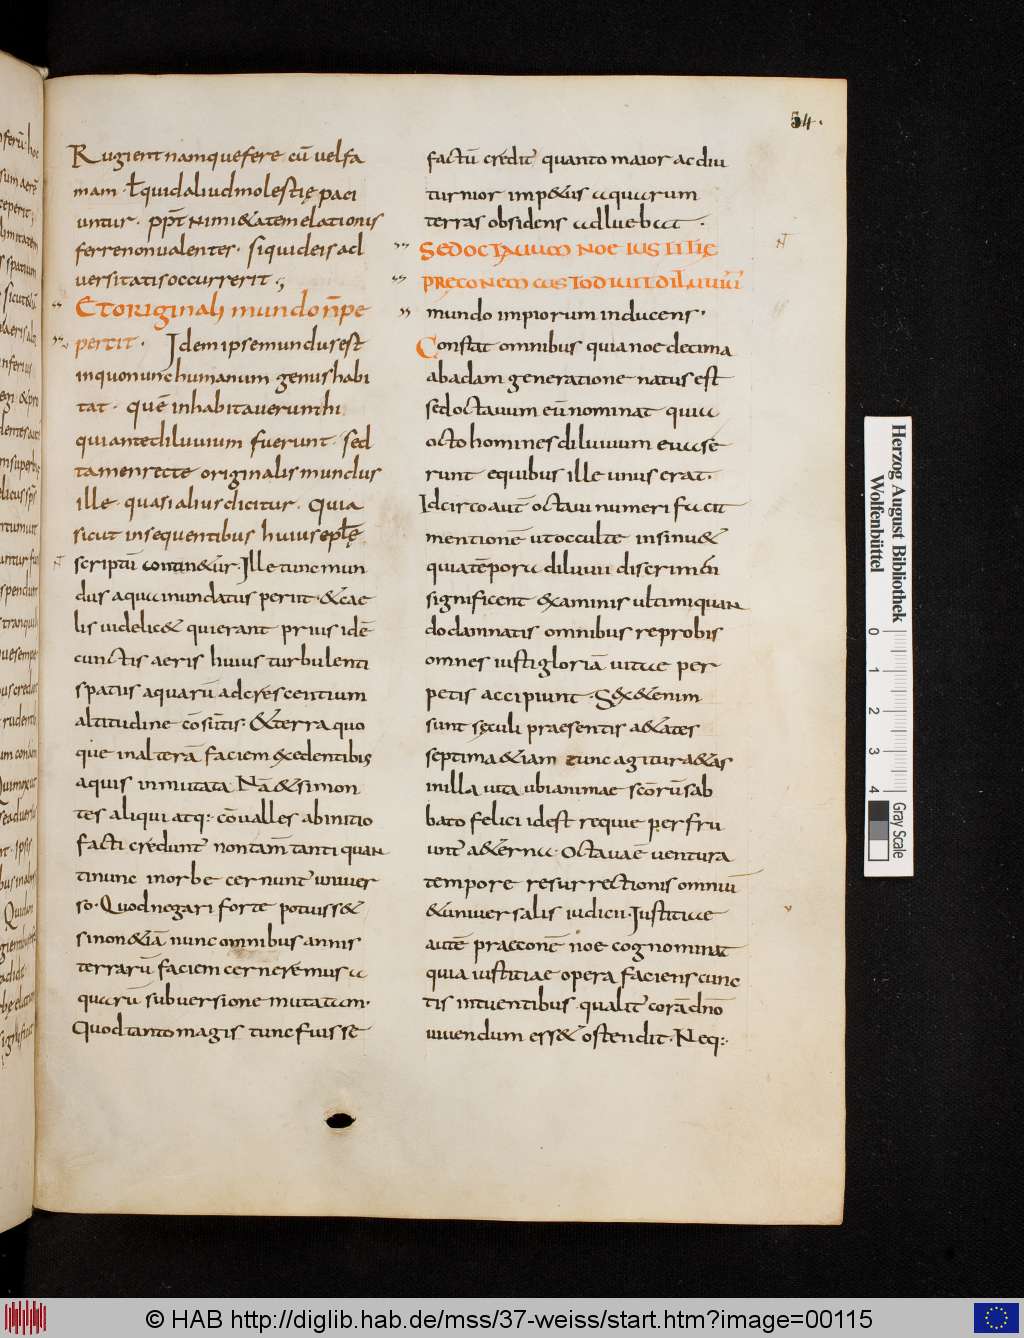 54.
Rugient namque fere cū vel fa
mam · ł quid aliud molestię paci
untur · ꝓpt nimi&atem elationis
ferre non valentes · si quid eis ad
versitatis occurrerit ;
Et originali mundo ñ pe
percit · Idem ipse mundus est
in quo nunc humanum genus habi
tat · quē inhabitaverunt hi
qui ante diluvium fuerunt · sed
tamen recte originalis mundus
ille · quasi alius dicitur · quia
sicut in sequentibus huius eplę
scriptū contin&ur · Ille tunc mun
dus aqua inundatus periit · & cae
lis videlic& qui erant prius idē
cunctis aeris huius turbulenti
spatiis aquarū adcrescentium
altitudine cōsūtis · & terra quo
que in alterā faciem excedentibus
aquis inmutata Nā & si mon
tes aliqui atq: cōvalles ab initio
facti credunt non tam tanti quan
ti nunc in orbe cernunt univer
so · Quod nogari forte potuiss&
si non &iā nunc omnibus annis
terrarū faciem cerneremus a
quarū subversione mutatam ·
Quod tanto magis tunc fuisse
factū credit quanto maior ac diu
turnior imp&us aquarum
terras obsidens adluebat ·
Sed octavum noe iustitię
pręconem custodivit diluviū
mundo impiorum inducens ·
Constat omnibus quia noe decima
ab adam generatione natus est
sed octavum eū nominat quia
octo homines diluvium evase
runt e quibus ille unus erat ·
Idcirco aut octavi numeri facit
mentionē ut occulte insinu&
quia tēpora diluvii discrimen
significent examinis ultimi quan
do damnatis omnibus reprobis
omnes iusti gloriā vitae per
petis accipiunt · Sex &enim
sunt sęculi praesentis a&ates
septima &iam tunc agitur a&as
in illa vita ubi animae scōrū sab
bato felici id est requie perfru
unt a&erna · Octava ē ventura
tempore resurrectionis omniū
& universalis iudicii · Iustitiae
autē praeconē noe cognominat
quia iustitiae opera faciens cunc
tis intuentibus qualit corā dn̄o
vivendum ess& ostendit · Neq:
Herzog August Bibliothek
Wolfenbüttel
0 1 2 3 4
Gray Scale
© HAB http://diglib.hab.de/mss/37-weiss/start.htm?image=00115